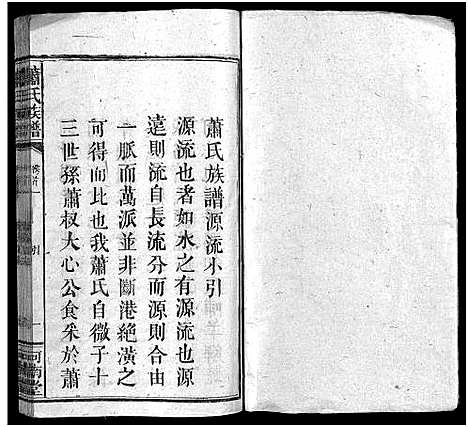 蕭氏族譜源流小引
源流也者如水之有源流也源
遠則流自長流分而源則合由
一脈而萬派並非斷港絕潢之
可得而比也我蕭氏自微子十
三世孫蕭叔大心公食采於蕭
蕭氏族譜
卷首
引
一
河南堂